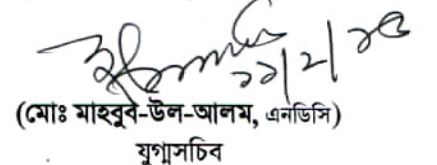 ২২|২|২৫
(মোঃ মাহবুবে-উল-আলম, এনডিসি)
যুগ্মসচিব